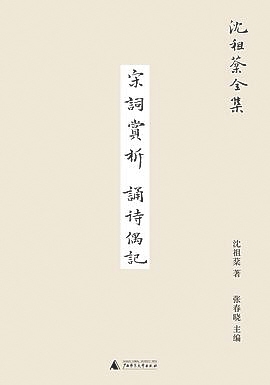 沈祖棻全集
宋詞賞析 誦诗偶記
沈祖棻 著
张春晓 主编
广西师范大学出版社